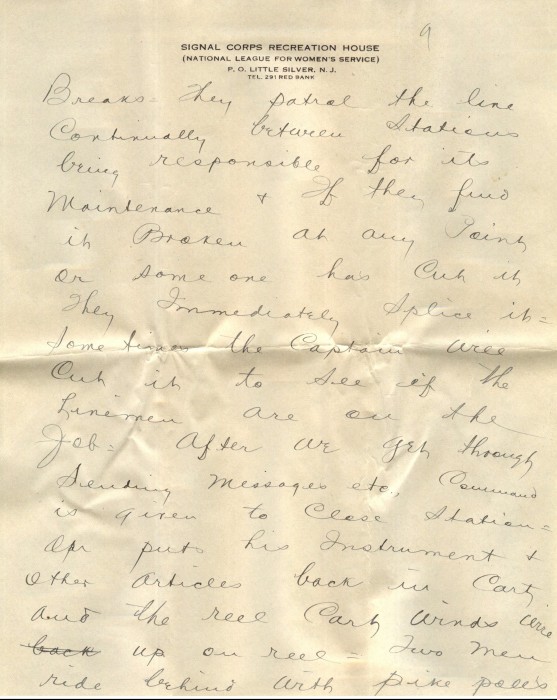 9
SIGNAL CORPS RECREATION HOUSE
(NATIONAL LEAGUE FOR WOMEN'S SERVICE)
P. O. LITTLE SILVER, N. J.
TEL. 291 RED BANK
Breaks = They patrol the line
Continually between Stations
being responsible for its
Maintenance & If they find
it Broken at any Point
or some one has Cut it
They Immediately Splice it =
Some times the Captain will
Cut it to see if the
Linemen are on the
Job = After we get through
Sending Messages etc., Command
is given to Close Station =
Opr puts his Instrument &
Other articles back in Cart,
and the reel Cart winds wire
back up on reel = Two Men
ride behind with pike poles